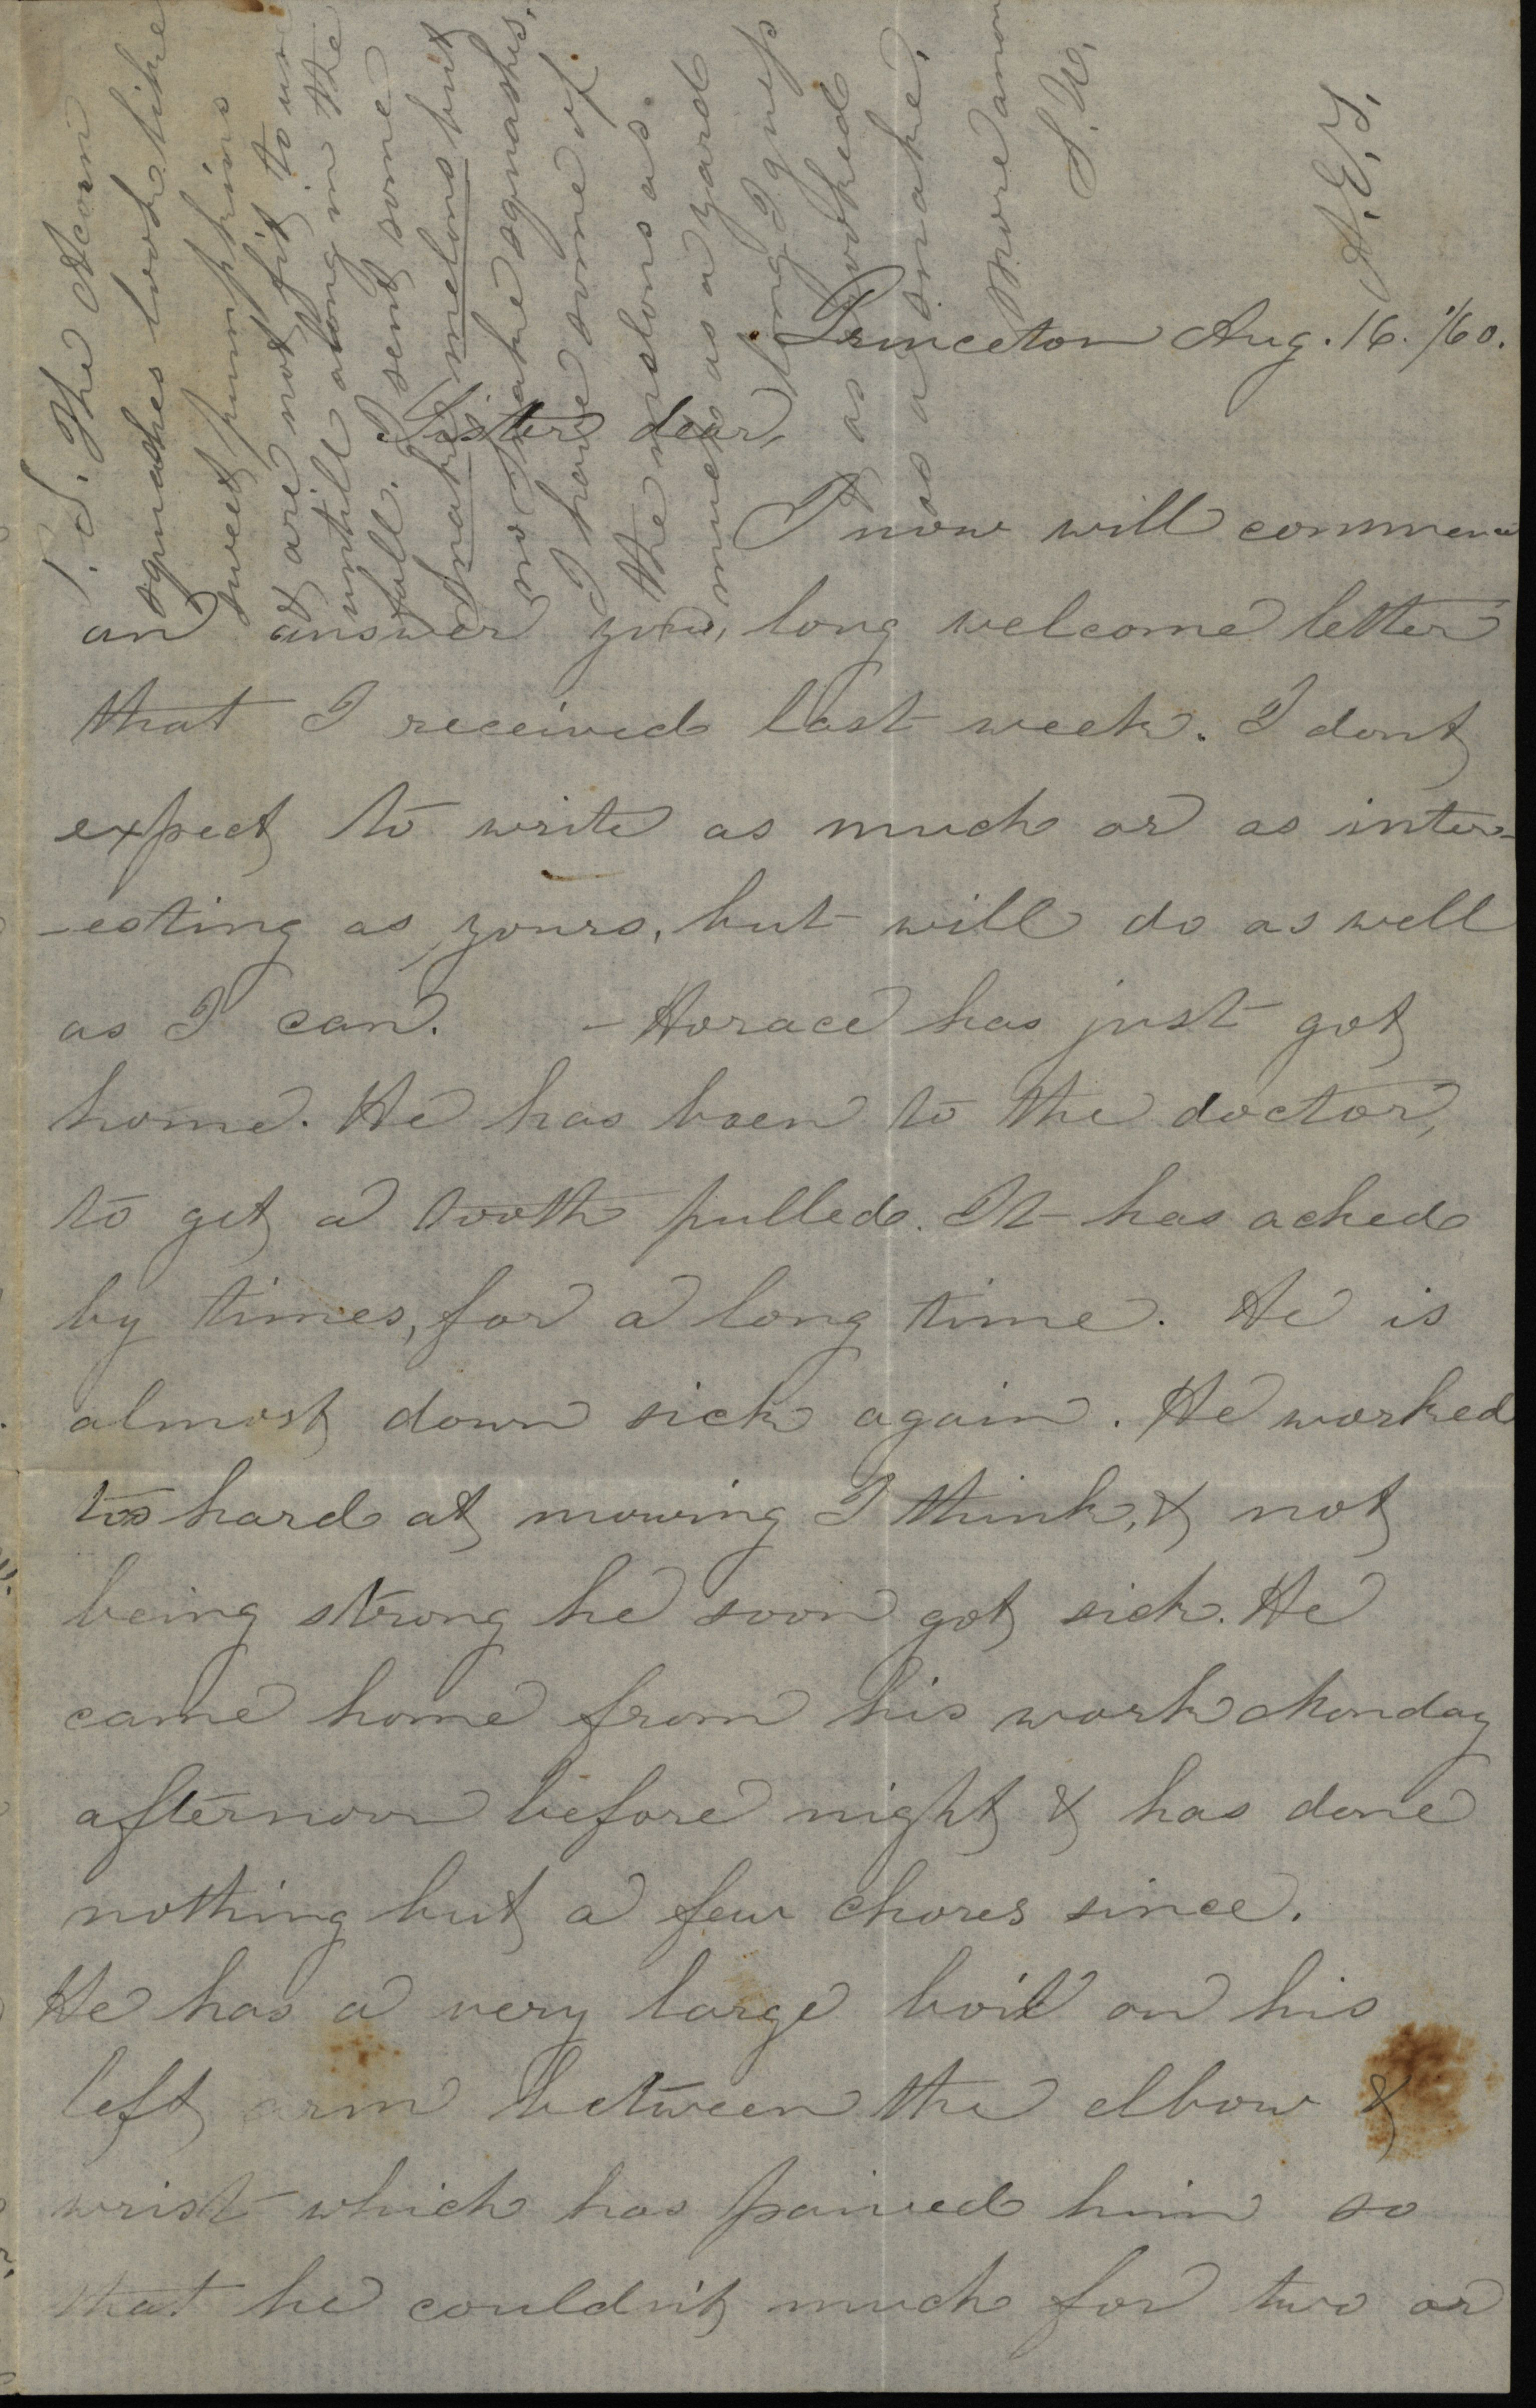 Princeton Aug. 16. /60.
Sister dear,
I now will commence
an answer your, long welcome letter
that I received last week. I dont
expect to write as much or as inter-
-esting as yours, but will do as well
as I can. - Horace has just got
home. He has been to the doctor,
to get a tooth pulled. It has ached
by times, for a long time. He is
almost down sick again. He worked
too hard at mowing I think, & not
being strong he soon got sick. He
came home from his work Monday
afternoon before night & has done
nothing but a few chores since.
He has a very large boil on his
left arm between the elbow &
wrist which has pained him so
that he couldn't much for two or
P.S. The Acorn
squashes look like
sweet pumpkins
& are not fit to use
untill along in the
fall. I sent some
snake melons but
no snake squashes.
I have some of
the melons as
much as a yard
long I guess
& as crooked
as a snake.
More anon
A.E.T.